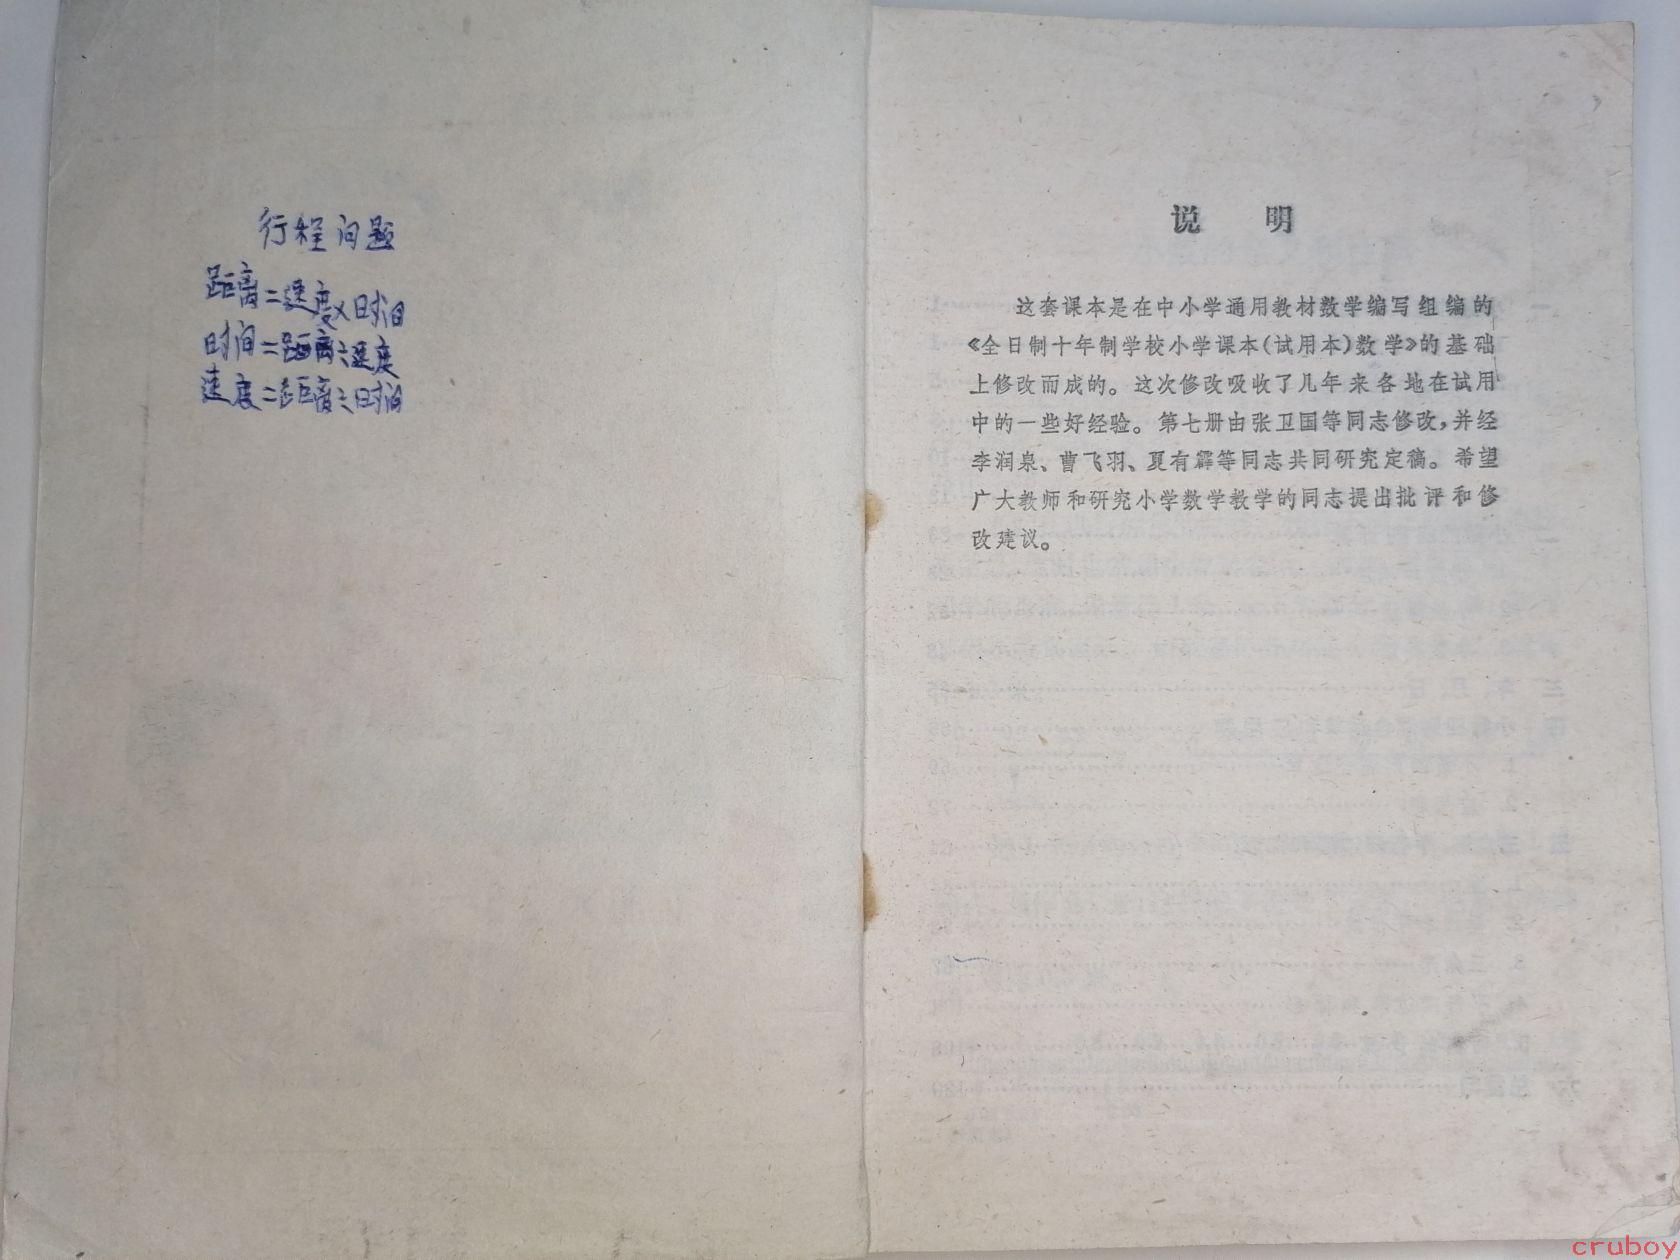 行程问题
距离=速度×时间
时间=距离÷速度
速度=距离÷时间
说 明
这套课本是在中小学通用教材数学编写组编的
《全日制十年制学校小学课本(试用本)数学》的基础
上修改而成的。这次修改吸收了几年来各地在试用
中的一些好经验。第七册由张卫国等同志修改,并经
李润泉、曹飞羽、夏有霖等同志共同研究定稿。希望
广大教师和研究小学数学教学的同志提出批评和修
改建议。
cruboy